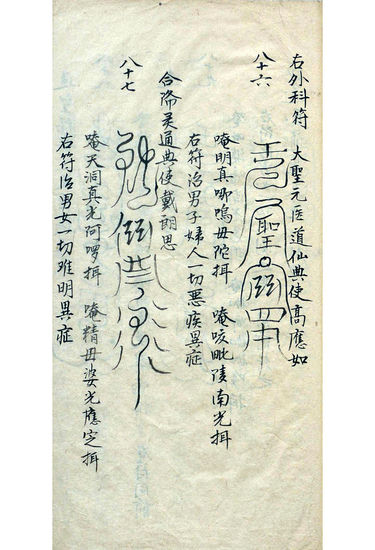 右外科符 大聖元医道仙典使高應如
八十六
唵明真唧嗚毋陀揖 唵吱毗陵南光揖
右符治男子婦人一切惡疾異症
合滞灵通典使戴朗思
八十七
唵天洞真光阿啰揖 唵精毋婆光應定揖
右符治男女一切难明異症